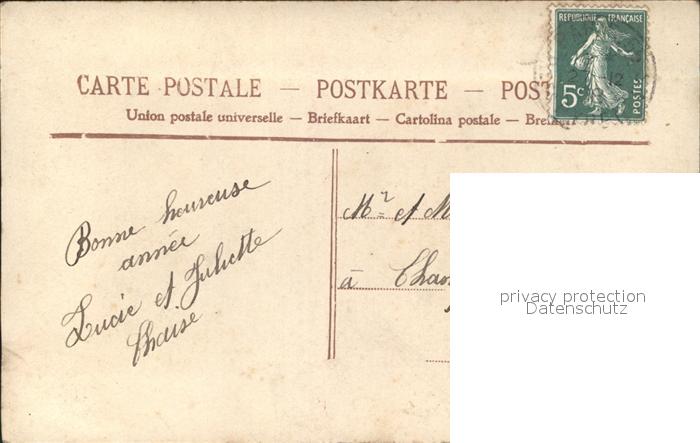 CARTE POSTALE — POSTKARTE — POST
Union postale universelle — Briefkaart — Cartolina postale — Bre
REPUBLIQUE FRANÇAISE
5c
POSTES
Bonne heureuse
année
Lucie et Juliette
Chaise
Mr et M
à Cha
privacy protection
Datenschutz